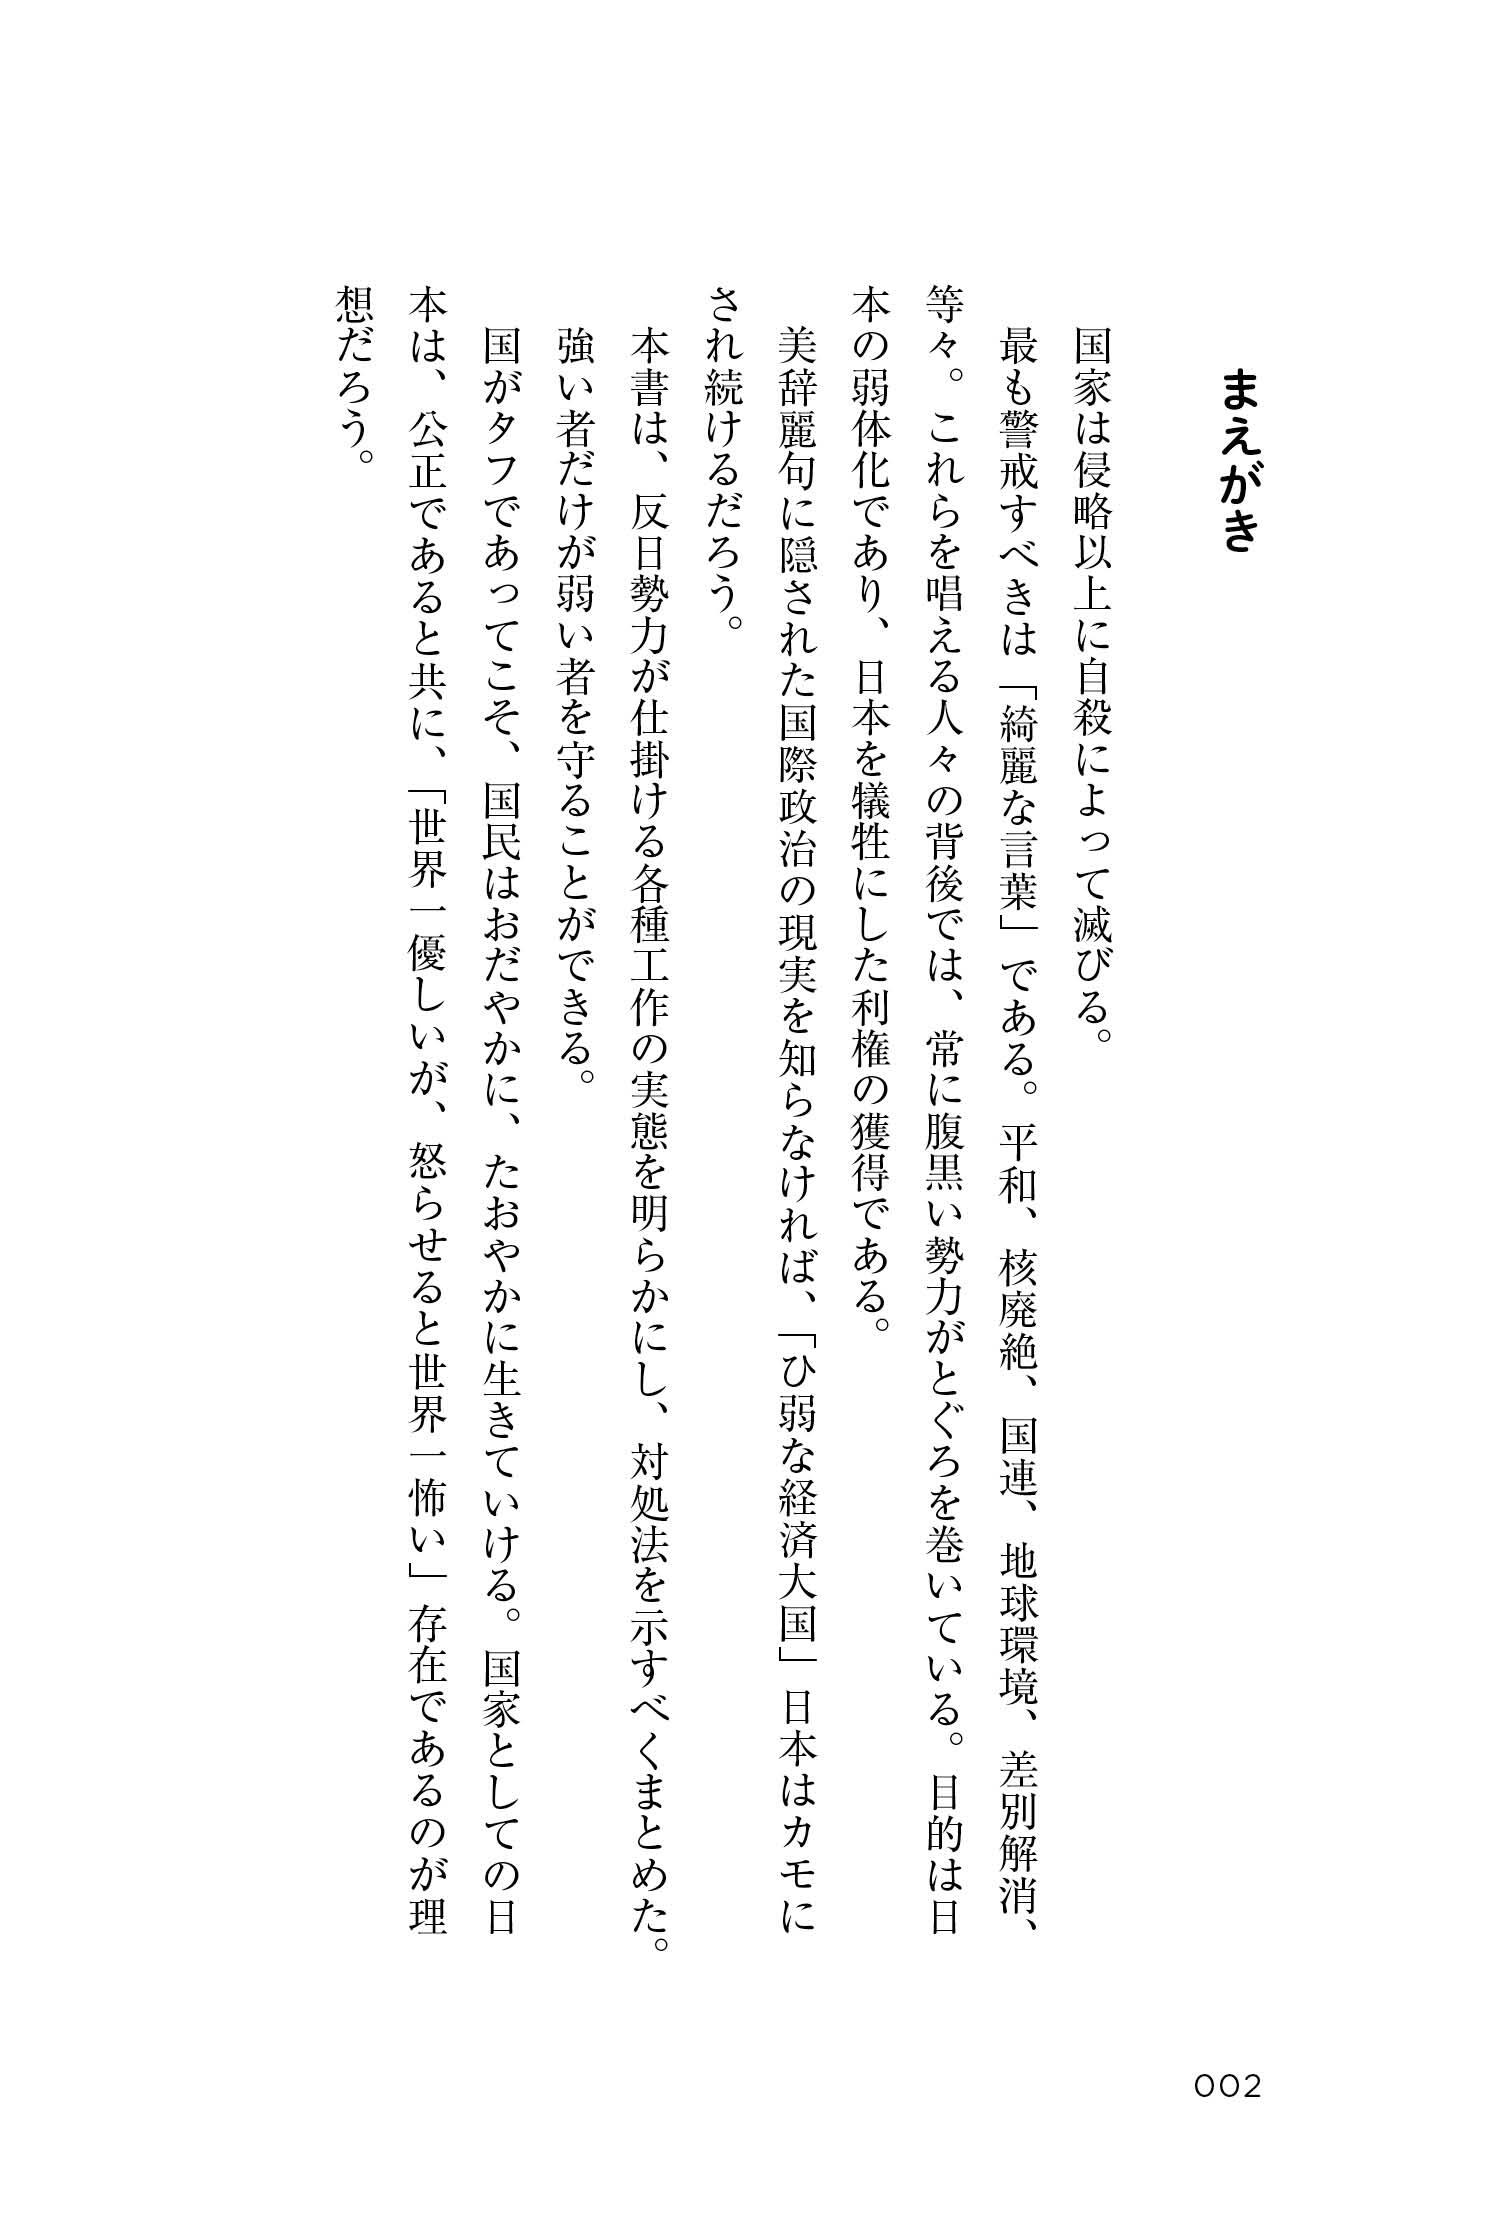 まえがき
国家は侵略以上に自殺によって滅びる。
最も警戒すべきは「綺麗な言葉」である。平和、核廃絶、国連、地球環境、差別解消、
等々。これらを唱える人々の背後では、常に腹黒い勢力がとぐろを巻いている。目的は日
本の弱体化であり、日本を犠牲にした利権の獲得である。
美辞麗句に隠された国際政治の現実を知らなければ、「ひ弱な経済大国」日本はカモに
され続けるだろう。
本書は、反日勢力が仕掛ける各種工作の実態を明らかにし、対処法を示すべくまとめた。
強い者だけが弱い者を守ることができる。
国がタフであってこそ、国民はおだやかに、たおやかに生きていける。国家としての日
本は、公正であると共に、「世界一優しいが、怒らせると世界一怖い」存在であるのが理
想だろう。
002